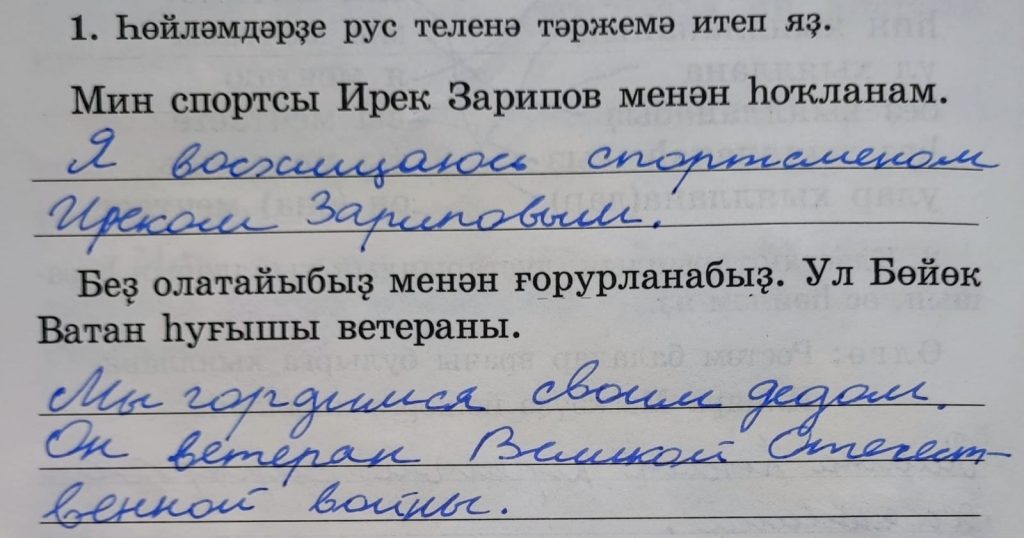 1. Һөйләмдәрҙе рус теленә тәржемә итеп яҙ.
Мин спортсы Ирек Зарипов менән һоҡланам.
Я восхищаюсь спортсменом
Иреком Зариповым.
Беҙ олатайыбыҙ менән ғорурланабыҙ. Ул Бөйөк
Ватан һуғышы ветераны.
Мы гордимся своим дедом.
Он ветеран Великой Отечест-
венной войны.